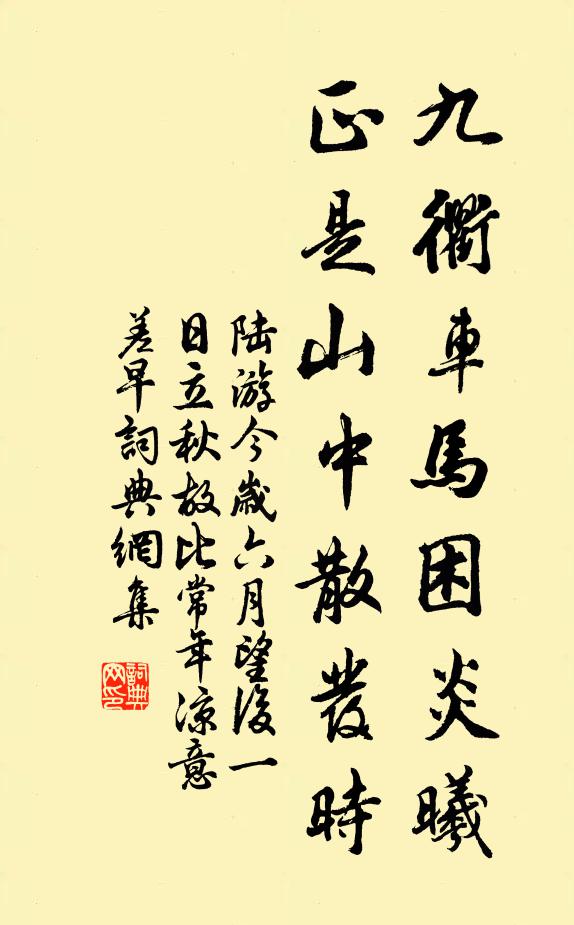 九衢車馬困炎曦
正是山中散發時
陆游今歲六月望後一
日立秋故比常年凉意
差早詞典網集
詞典网印